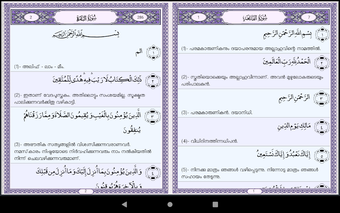 1 سُورَةُ الفَاتِحَة 7
بِسْمِ اللَّهِ الرَّحْمَٰنِ الرَّحِيمِ
(1). പരമകാരുണികനും ദയാപരനുമായ അല്ലാഹുവിന്റെ നാമത്തിൽ.
الْحَمْدُ لِلَّهِ رَبِّ الْعَالَمِينَ
(2). സ്തുതിയൊക്കെയും അല്ലാഹുവിന്നാണ്. അവൻ മുഴുലോകരുടെയും
പരിപാലകൻ.
الرَّحْمَٰنِ الرَّحِيمِ
(3). പരമകാരുണികൻ. ദയാനിധി.
مَالِكِ يَوْمِ الدِّينِ
(4). വിധിദിനത്തിന്നധിപൻ.
إِيَّاكَ نَعْبُدُ وَإِيَّاكَ نَسْتَعِينُ
(5). നിനക്കു മാത്രം ഞങ്ങൾ വഴിപ്പെടുന്നു. നിന്നോടു മാത്രം ഞങ്ങൾ
സഹായം തേടുന്നു.
2 سُورَةُ البَقَرَة 286
بِسْمِ اللَّهِ الرَّحْمَٰنِ الرَّحِيمِ
الم
(1). അലിഫ് - ലാം - മീം.
ذَٰلِكَ الْكِتَابُ لَا رَيْبَ فِيهِ هُدًى لِلْمُتَّقِينَ
(2). ഇതാണ് വേദപുസ്തകം. അതിലൊട്ടും സംശയമില്ല. സൂക്ഷ്മത
പാലിക്കുന്നവർക്കിതു വഴികാട്ടി.
الَّذِينَ يُؤْمِنُونَ بِالْغَيْبِ وَيُقِيمُونَ الصَّلَاةَ وَمِمَّا رَزَقْنَاهُمْ
يُنْفِقُونَ
(3). അഭൗതിക സത്യങ്ങളിൽ വിശ്വസിക്കുന്നവരാണവർ.
നമസ്കാരം നിഷ്ഠയോടെ നിർവഹിക്കുന്നവരും നാം നൽകിയതിൽ
നിന്ന് ചെലവഴിക്കുന്നവരുമാണ്.
وَالَّذِينَ يُؤْمِنُونَ بِمَا أُنْزِلَ إِلَيْكَ وَمَا أُنْزِلَ مِنْ قَبْلِكَ
وَبِالْآخِرَةِ هُمْ يُوقِنُونَ